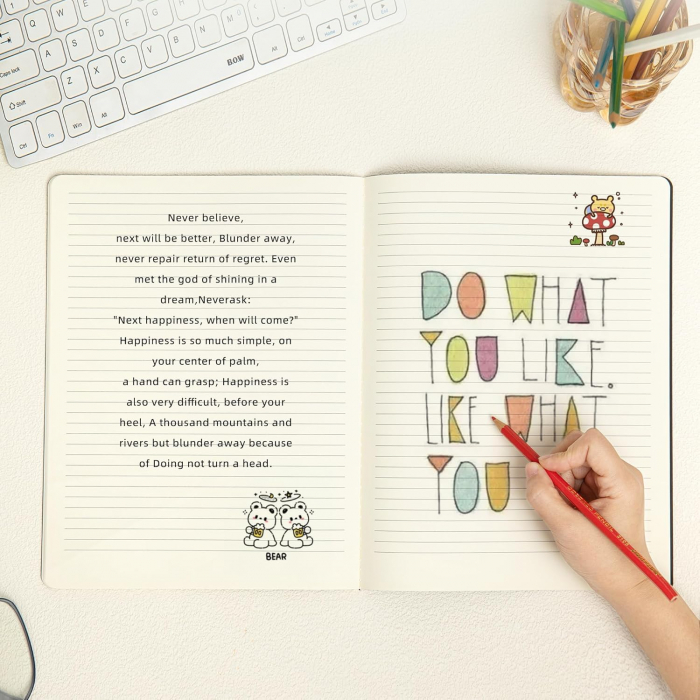 Never believe,
next will be better, Blunder away,
never repair return of regret. Even
met the god of shining in a
dream,Neverask:
"Next happiness, when will come?"
Happiness is so much simple, on
your center of palm,
a hand can grasp; Happiness is
also very difficult, before your
heel, A thousand mountains and
rivers but blunder away because
of Doing not turn a head.
BEAR
DO WHAT
YOU LIKE.
LIKE WHAT
YOU
Q W
A S D F G H J K L
Caps lock
Shift
Z X C V B N M
Ctrl Fn Win Alt
BOW
Alt Ctrl